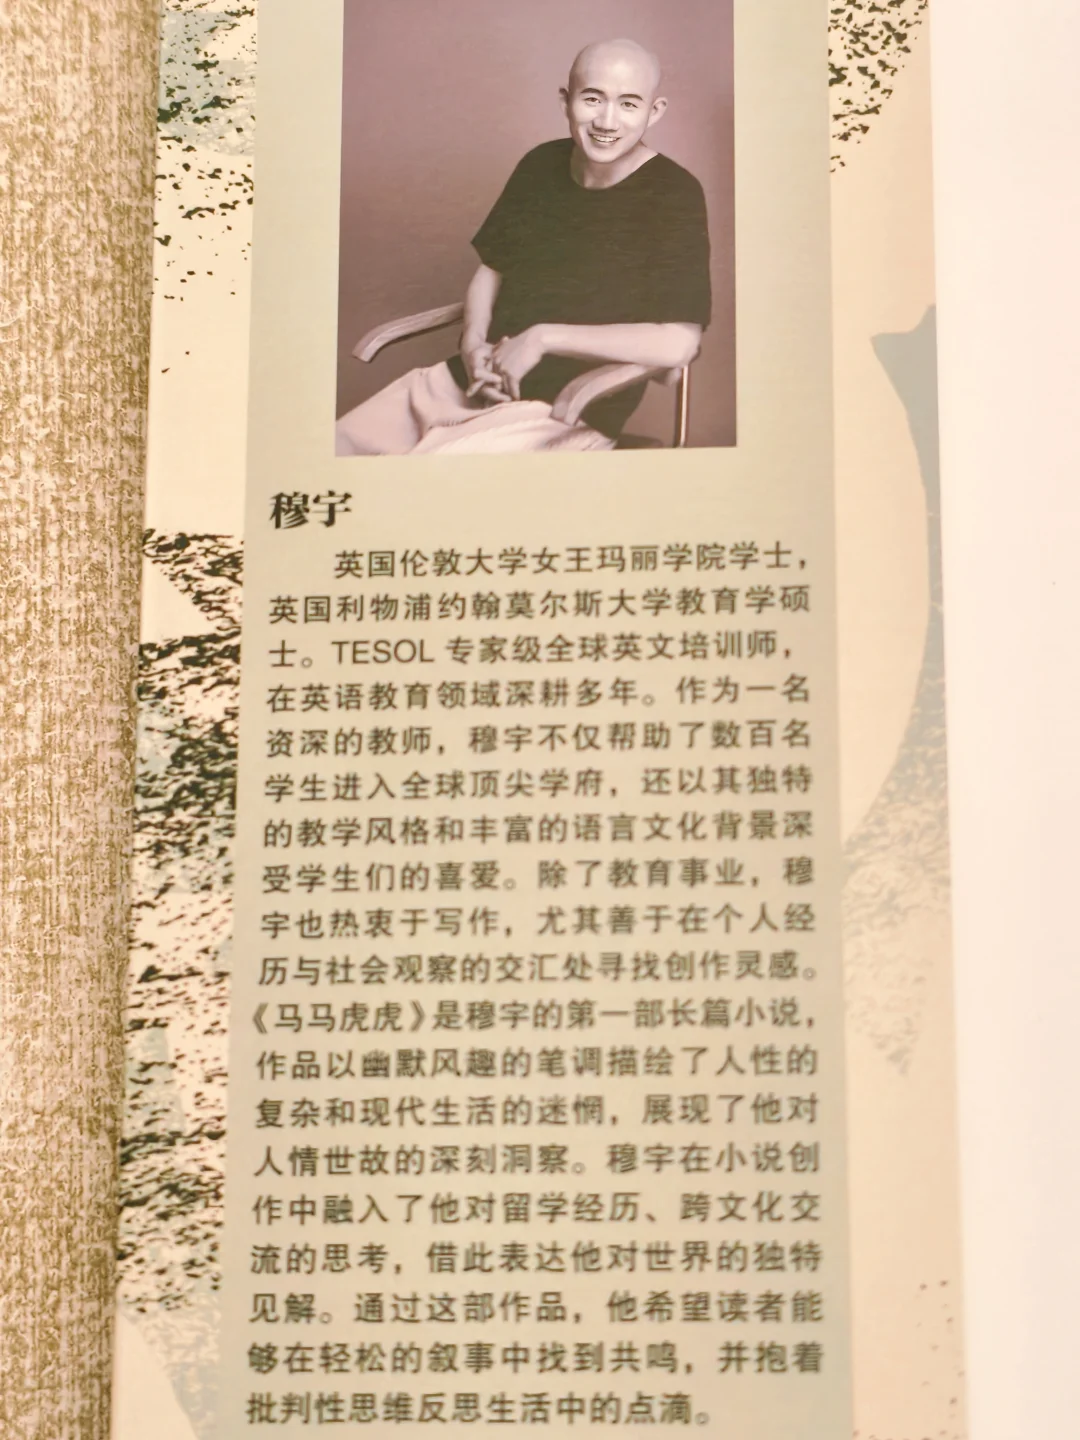 穆宇
英国伦敦大学女王玛丽学院学士，
英国利物浦约翰莫尔斯大学教育学硕
士。TESOL 专家级全球英文培训师，
在英语教育领域深耕多年。作为一名
资深的教师，穆宇不仅帮助了数百名
学生进入全球顶尖学府，还以其独特
的教学风格和丰富的语言文化背景深
受学生们的喜爱。除了教育事业，穆
宇也热衷于写作，尤其善于在个人经
历与社会观察的交汇处寻找创作灵感。
《马马虎虎》是穆宇的第一部长篇小说，
作品以幽默风趣的笔调描绘了人性的
复杂和现代生活的迷惘，展现了他对
人情世故的深刻洞察。穆宇在小说创
作中融入了他对留学经历、跨文化交
流的思考，借此表达他对世界的独特
见解。通过这部作品，他希望读者能
够在轻松的叙事中找到共鸣，并抱着
批判性思维反思生活中的点滴。